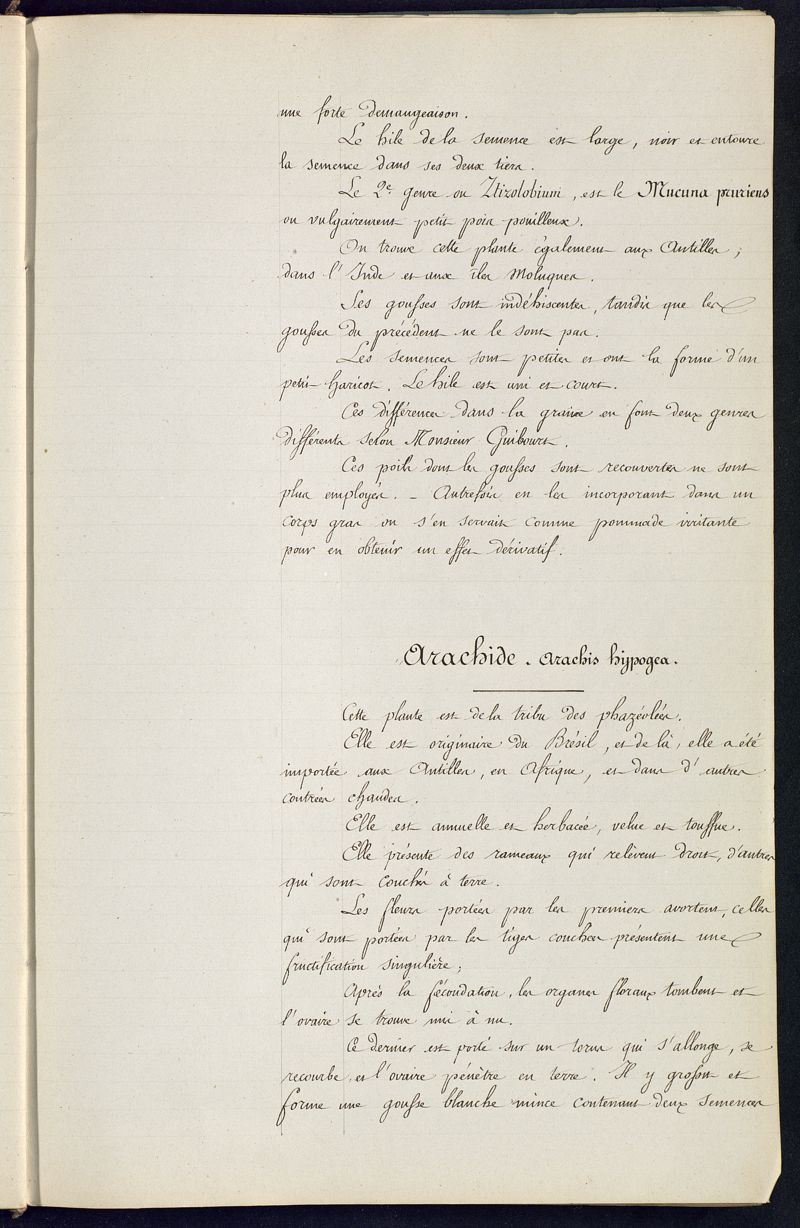 une forte démangeaison.
Le hile de la semence est large, noir et entoure
la semence dans ses deux tiers.
Le 2e genre ou Ztizolobium, est le Mucuna pruriens
ou vulgairement petit pois pouilleux.
On trouve cette plante également aux Antilles ;
dans l'Inde et aux îles Moluques.
Ses gousses sont indéhiscentes, tandis que les
gousses du précédent ne le sont pas.
Les semences sont petites et ont la forme d'un
petit haricot. Le hile est uni et court.
Ces différences dans la graine en font deux genres
différents selon Monsieur Guibourt.
Ces poils dont les gousses sont recouvertes ne sont
plus employés. - Autrefois en les incorporant dans un
corps gras on s'en servait comme pommade irritante
pour en obtenir un effet dérivatif.
Arachide. Arachis hypogea.
Cette plante est de la tribu des phazéolées.
Elle est originaire du Brésil, et de là, elle a été
importée aux Antilles, en Afrique, et dans d'autres
contrées chaudes.
Elle est annuelle et herbacée, velue et touffue.
Elle présente des rameaux qui relèvent droit, d'autres
qui sont couchés à terre.
Les fleurs portées par les premiers avortent, celles
qui sont portées par les tiges couchés présentent une
fructification singulière ;
Après la fécondation, les organes floraux tombent et
l'ovaire se trouve mis à nu.
Ce dernier est porté sur un torus qui s'allonge, se
recourbe et l'ovaire pénètre en terre. Il y grossit et
forme une gousse blanche mince contenant deux semences